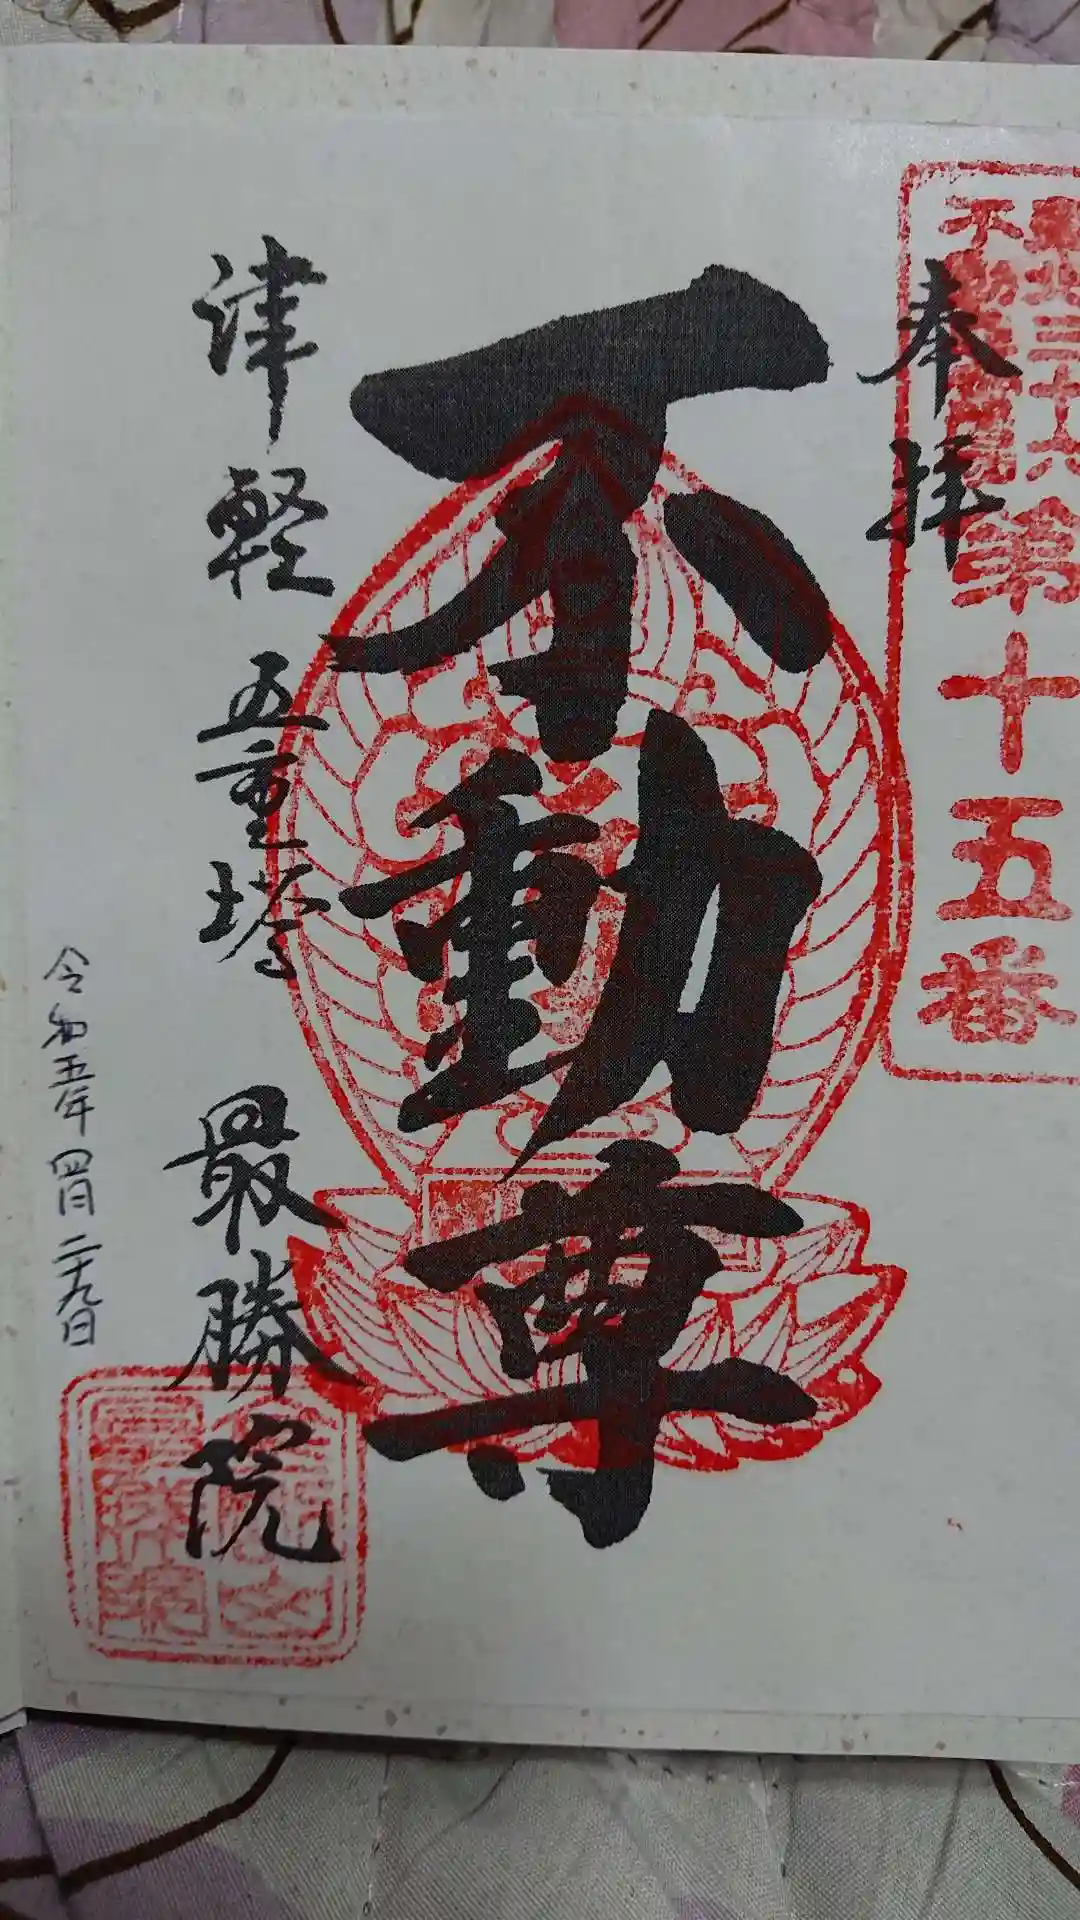 東北三十六
不動尊霊場
第十五番
奉拝
不動尊
津軽五重塔 最勝院
令和五年四月二十九日